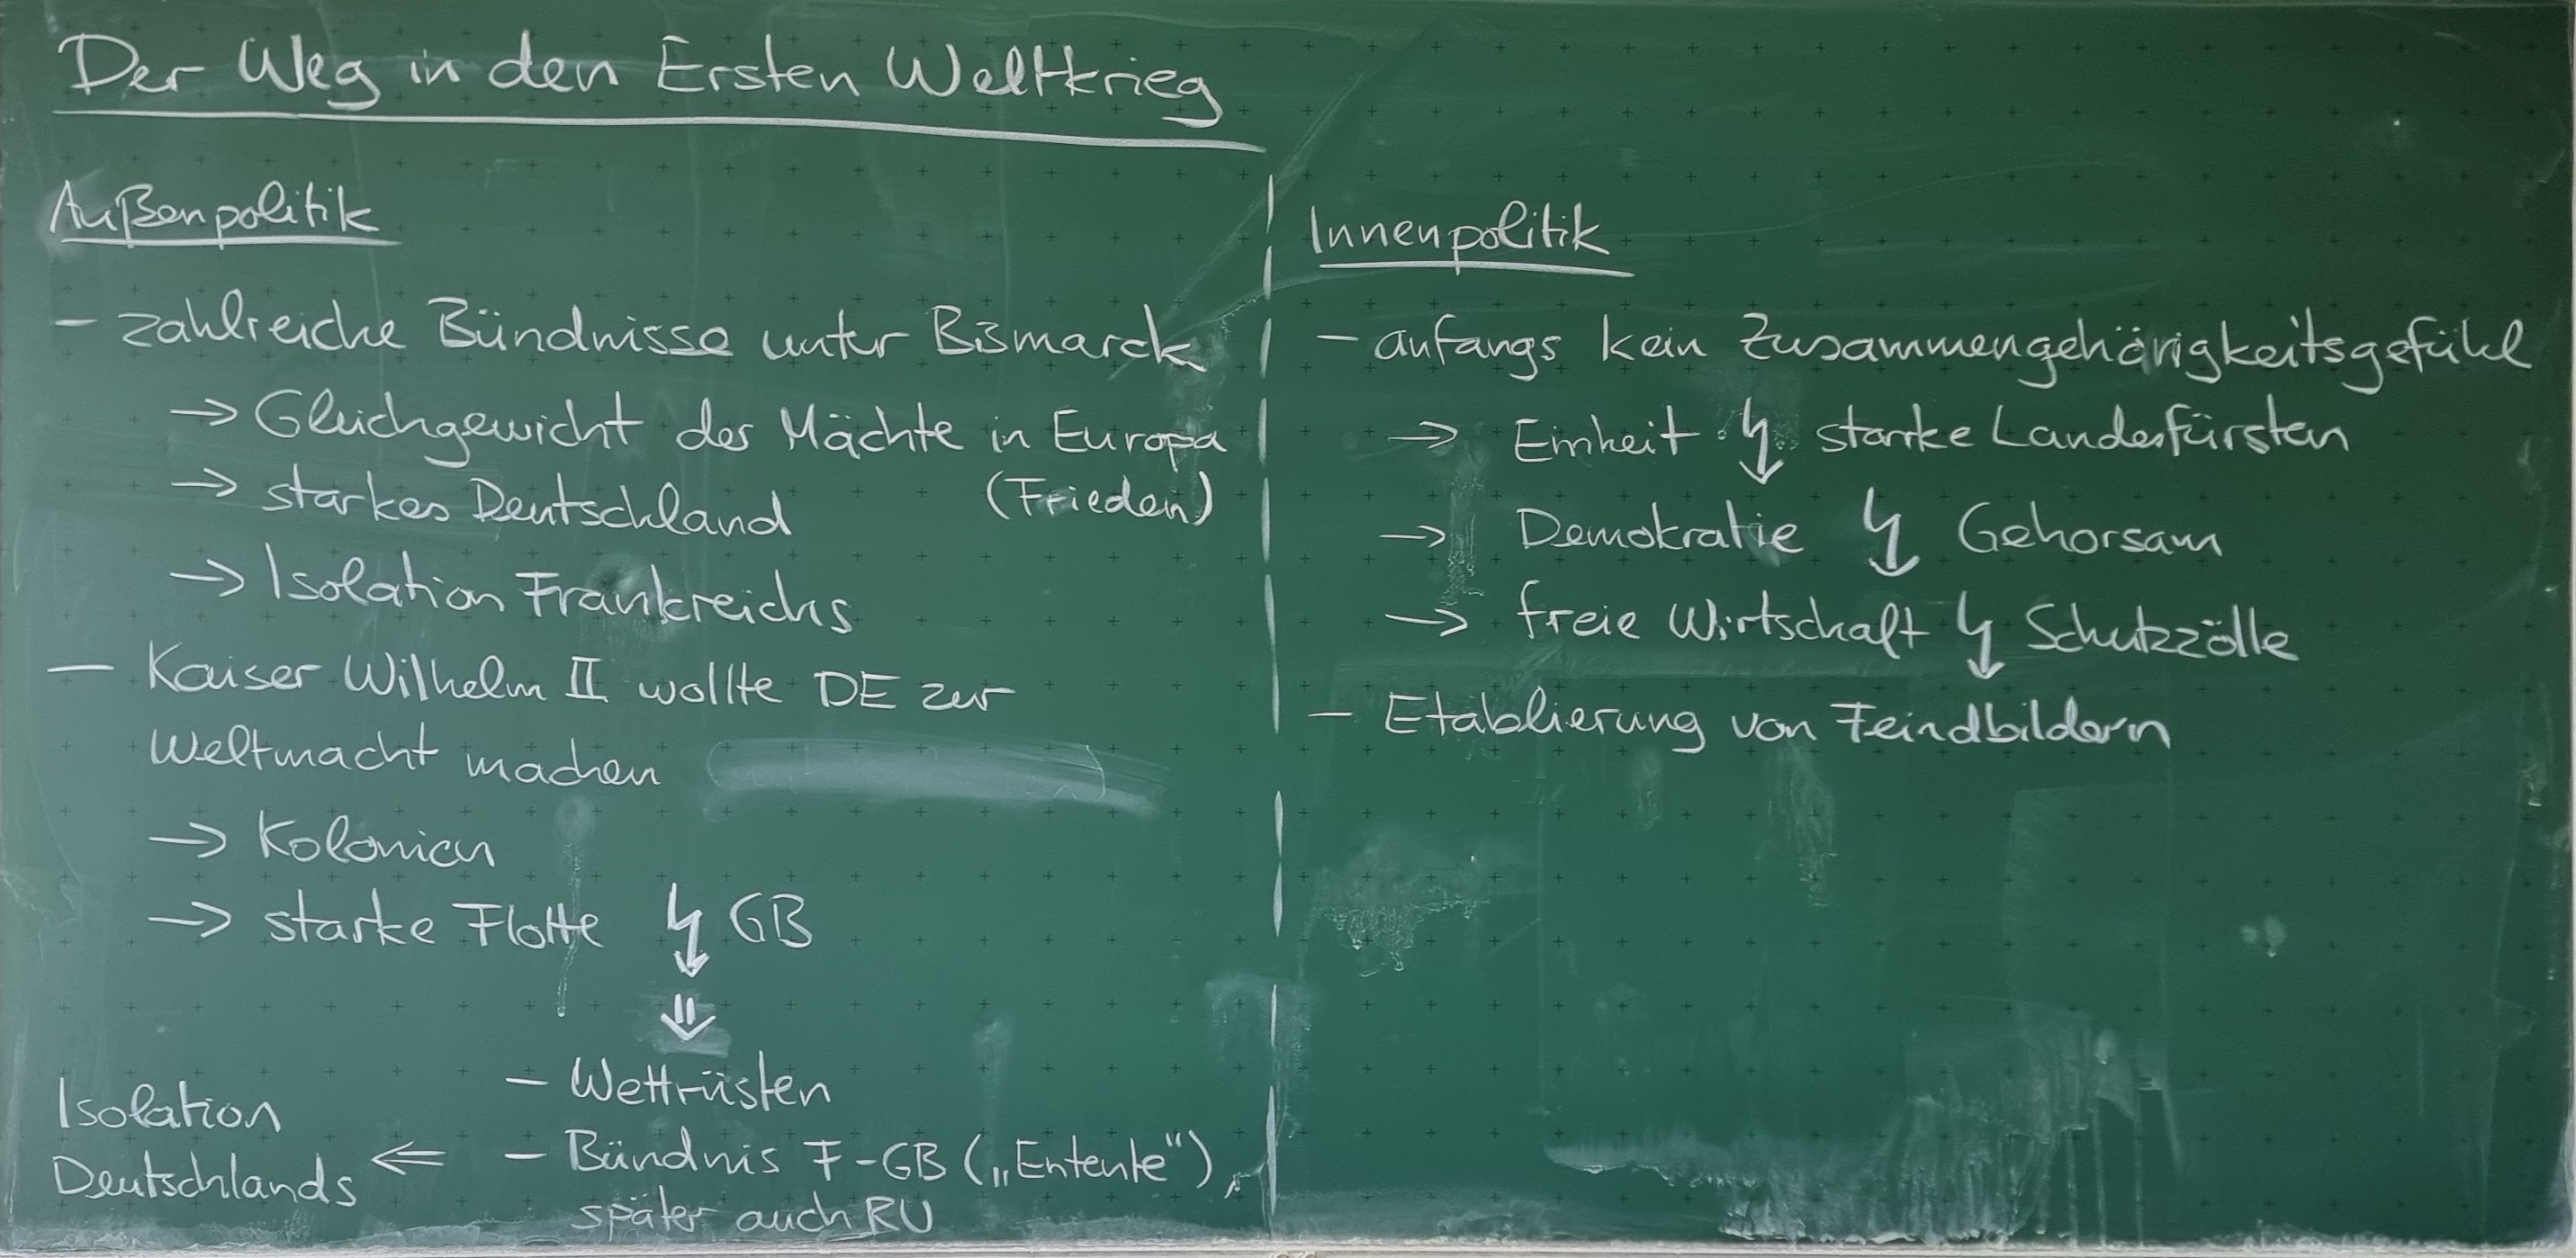 Der Weg in den Ersten Weltkrieg
Außenpolitik
- zahlreiche Bündnisse unter Bismarck
→ Gleichgewicht der Mächte in Europa
(Frieden)
→ starkes Deutschland
→ Isolation Frankreichs
- Kaiser Wilhelm II wollte DE zur
Weltmacht machen
→ Kolonien
→ starke Flotte ↯ GB
⇓
- Wettrüsten
- Bündnis F-GB („Entente“),
später auch RU
⇐
Isolation
Deutschlands
Innenpolitik
- anfangs kein Zusammengehörigkeitsgefühl
→ Einheit ↯ starke Landesfürsten
→ Demokratie ↯ Gehorsam
→ freie Wirtschaft ↯ Schutzzölle
- Etablierung von Feindbildern